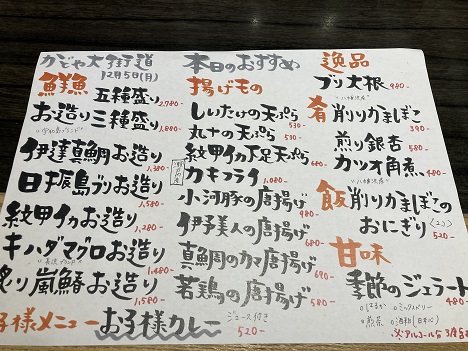 かどや大街道
12月5日(月)
鮮魚
お造り 五種盛り 2,780-
三種盛り 1,880-
伊達真鯛お造り 1,380-
日振島ブリお造り 1,580-
紋甲イカお造り 1,280-
キハダマグロお造り 1,480-
炙り嵐鰆お造り 1,580-
本日のおすすめ
揚げもの
しいたけの天ぷら 530-
丸十の天ぷら 530-
紋甲イカ下足天ぷら 680-
カキフライ 1,080-
小河豚の唐揚げ 980-
伊予美人の唐揚げ 680-
真鯛のカマ唐揚げ 680-
若鶏の唐揚げ 580-
逸品
ブリ大根 980-
"八幡浜産"
肴
削りかまぼこ 390-
煎り銀杏 580-
カツオ角煮 480-
"八幡浜産"
飯
削りかまぼこの
おにぎり (2コ) 520-
甘味
季節のジェラート 480-
お子様カレー
ジュース付き
520-
子様メニュー